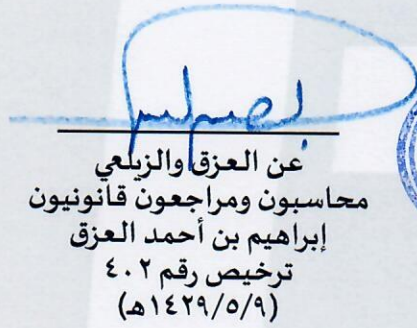 عن العزق والزيلعي
محاسبون ومراجعون قانونيون
إبراهيم بن أحمد العزق
ترخيص رقم ٤٠٢
(١٤٢٩/٥/٩هـ)